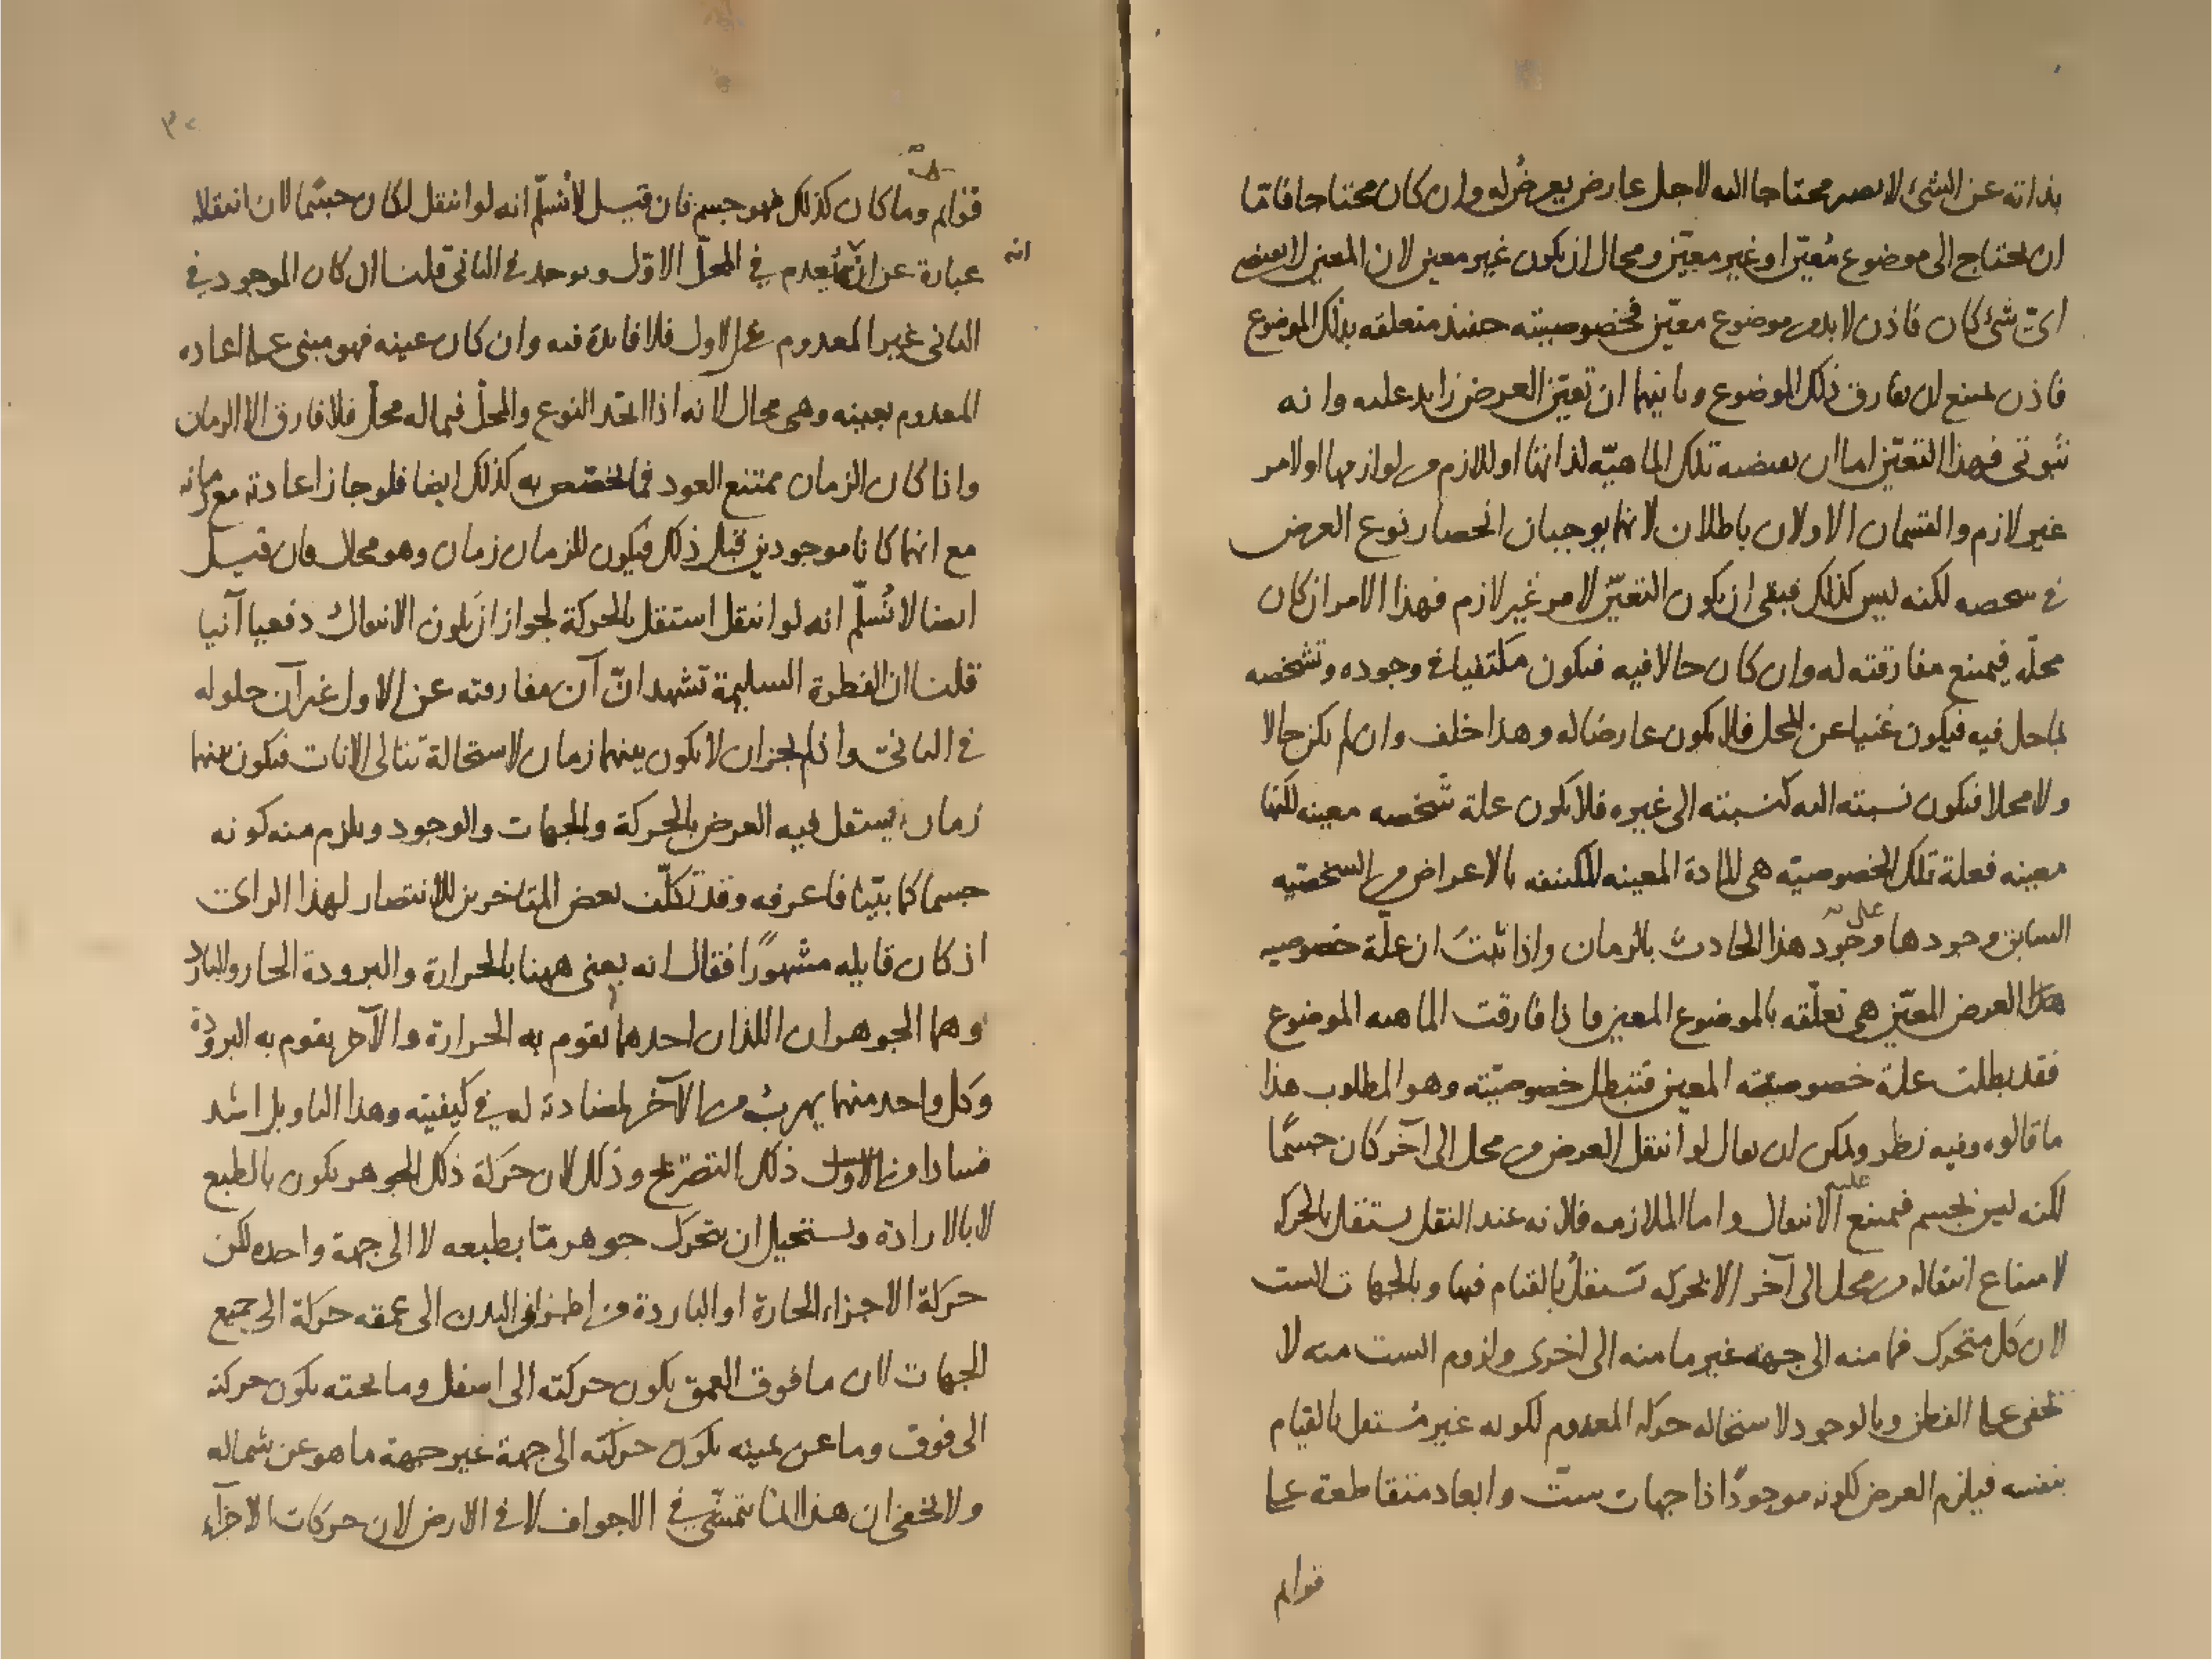 بذاته عن الشئ لا يصير محتاجا اليه لاجل عارض يعرض له وان كان محتاجا فاما
ان يحتاج الى موضوع معيّن او غير معيّن ومحال ان يكون غير معين لان المعين لا يقتضيه
اىّ شئ كان فاذن لا بد من موضوع معيّن فخصوصيته حينئذ متعلقه بذلك الموضوع
فاذن يمتنع ان يفارق ذلك الموضوع وثانيهما ان تعيّن العرض زايد عليه وانه
ثبوتى فهذا التعيّن اما ان يقتضيه تلك الماهيّه لذاتها او للازم من لوازمها او لامر
غير لازم والقسمان الاولان باطلان لانهما يوجبان انحصار نوع العرض
فى شخصه لكنه ليس كذلك فبقى ان يكون التعيّن لامر غير لازم فهذا الامر ان كان
محلّه فيمتنع مفارقته له وان كان حالا فيه فيكون مكتفيا فى وجوده وتشخصه
بما حل فيه فيكون غنيا عن المحل فلا يكون عارضا له وهذا خلف وان لم يكن حالا
ولا محلا فيكون نسبته اليه كنسبته الى غيره فلا يكون علة شخصه معينه لكنها
معينه فعلة تلك الخصوصيّه هى المادة المعينه المكتنفه بالاعراض من الشخصيّه
السابق وجودها على وجود هذا الحادث بالزمان واذا ثبت ان علّة خصوصيه
هذا العرض المعيّن هى تعلّقه بالموضوع المعين فاذا فارقت الماهيه الموضوع
فقد بطلت علة خصوصيّته المعين فتبطل خصوصيّته وهو المطلوب هذا
ما قالوه وفيه نظر ويمكن ان يقال لو انتقل العرض من محل الى آخر كان جسمًا
لكنه ليس بجسم فيمتنع عليه الانتقال واما الملازمه فلانه عند النقل يستقل بالحركه
لامتناع انتقاله من محل الى آخر الا بحركه تستقل بالقيام فيها وبالجهات الست
لان كل متحرك فما منه الى جهة غير ما منه الى اخرى ولزوم الست منه لا
يخفى على الفطن وبالوجود لاستحاله حركه المعدوم لكونه غير مستقل بالقيام
بنفسه فيلزم العرض كونه موجودًا ذا جهات ستّ وابعاد متقاطعة على
قوايم
٣٠
قوايم وما كان كذلك فهو جسم فان قيل لا نُسلّم انه لو انتقل لكان جسمًا لان انتقاله
عبارة عن انه يعدم فى المحلّ الاوّل ويوجد فى الثانى قلنا ان كان الموجود فى
انه
الثانى غير المعدوم عن الاول فلا فايدة فيه وان كان عينه فهو مبنى على اعاده
المعدوم بعينه وهى محال لانه اذا اتحد النوع والمحلّ فيما له محلّ فلا فارق الا الزمان
واذا كان الزمان ممتنع العود فما يختص به كذلك ايضا فلو جاز اعادته مع زمانه
مع انهما كانا موجودين قبل ذلك فيكون للزمان زمان وهو محال فان قيل
ايضا لا نُسلّم انه لو انتقل استقل بالحركة لجواز ان يكون الانتقال دفعيا آنيا
قلنا ان الفطرة السليمة تشهد انّ آن مفارقته عن الاول غير آن حلوله
فى الثانى واذا لم يجز ان لا يكون بينهما زمان لاستحالة تتالى الانات فيكون بينهما
زمان يستقل فيه العرض بالحركة والجهات والوجود ويلزم منه كونه
جسما كما بيّنا فاعرفه وقد تكلّف بعض المتاخرين للانتصار لهذا الراى
اذ كان قايله مشهورًا فقال انه يعنى ههنا بالحرارة والبرودة الحار والبارد
وهما الجوهران اللذان احدهما يقوم به الحرارة والآخر يقوم به البرودة
وكل واحد منهما يهرب من الآخر لمضادته له فى كيفيته وهذا التاويل اشد
فسادا من الاول ذلك التصريح وذلك لان حركة ذلك الجوهر يكون بالطبع
لا بالارادة ويستحيل ان يتحرك جوهر مّا بطبعه لا الى جهة واحده لكن
حركة الاجزاء الحارة او الباردة من اطراف البدن الى عمقه حركة الى جميع
الجهات لان ما فوق العمق يكون حركته الى اسفل وما تحته يكون حركته
الى فوق وما عن يمينه يكون حركته الى جهة غير جهة ما هو عن شماله
ولا يخفى ان هذا انما يتمشّى فى الاجواف لا فى الارض لان حركات الاجزآء